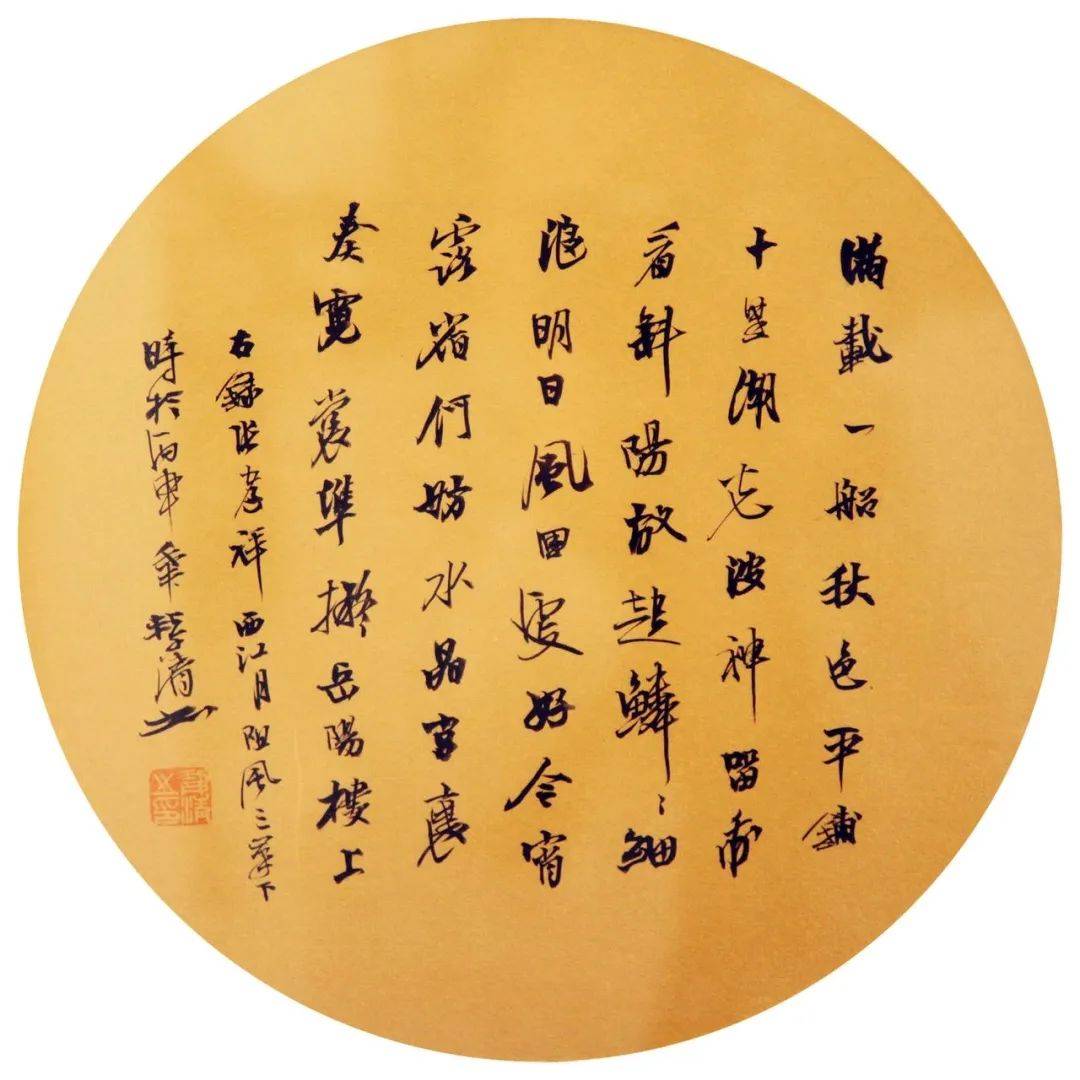 滿載一船秋色平鋪
十里湖光波神留我
看斜陽放起鱗〻細
浪明日風回更好今宵
露宿何妨水晶宮裏
奏霓裳準擬岳陽樓上
右錄張孝祥西江月阻風三峯下
時於丙申清書